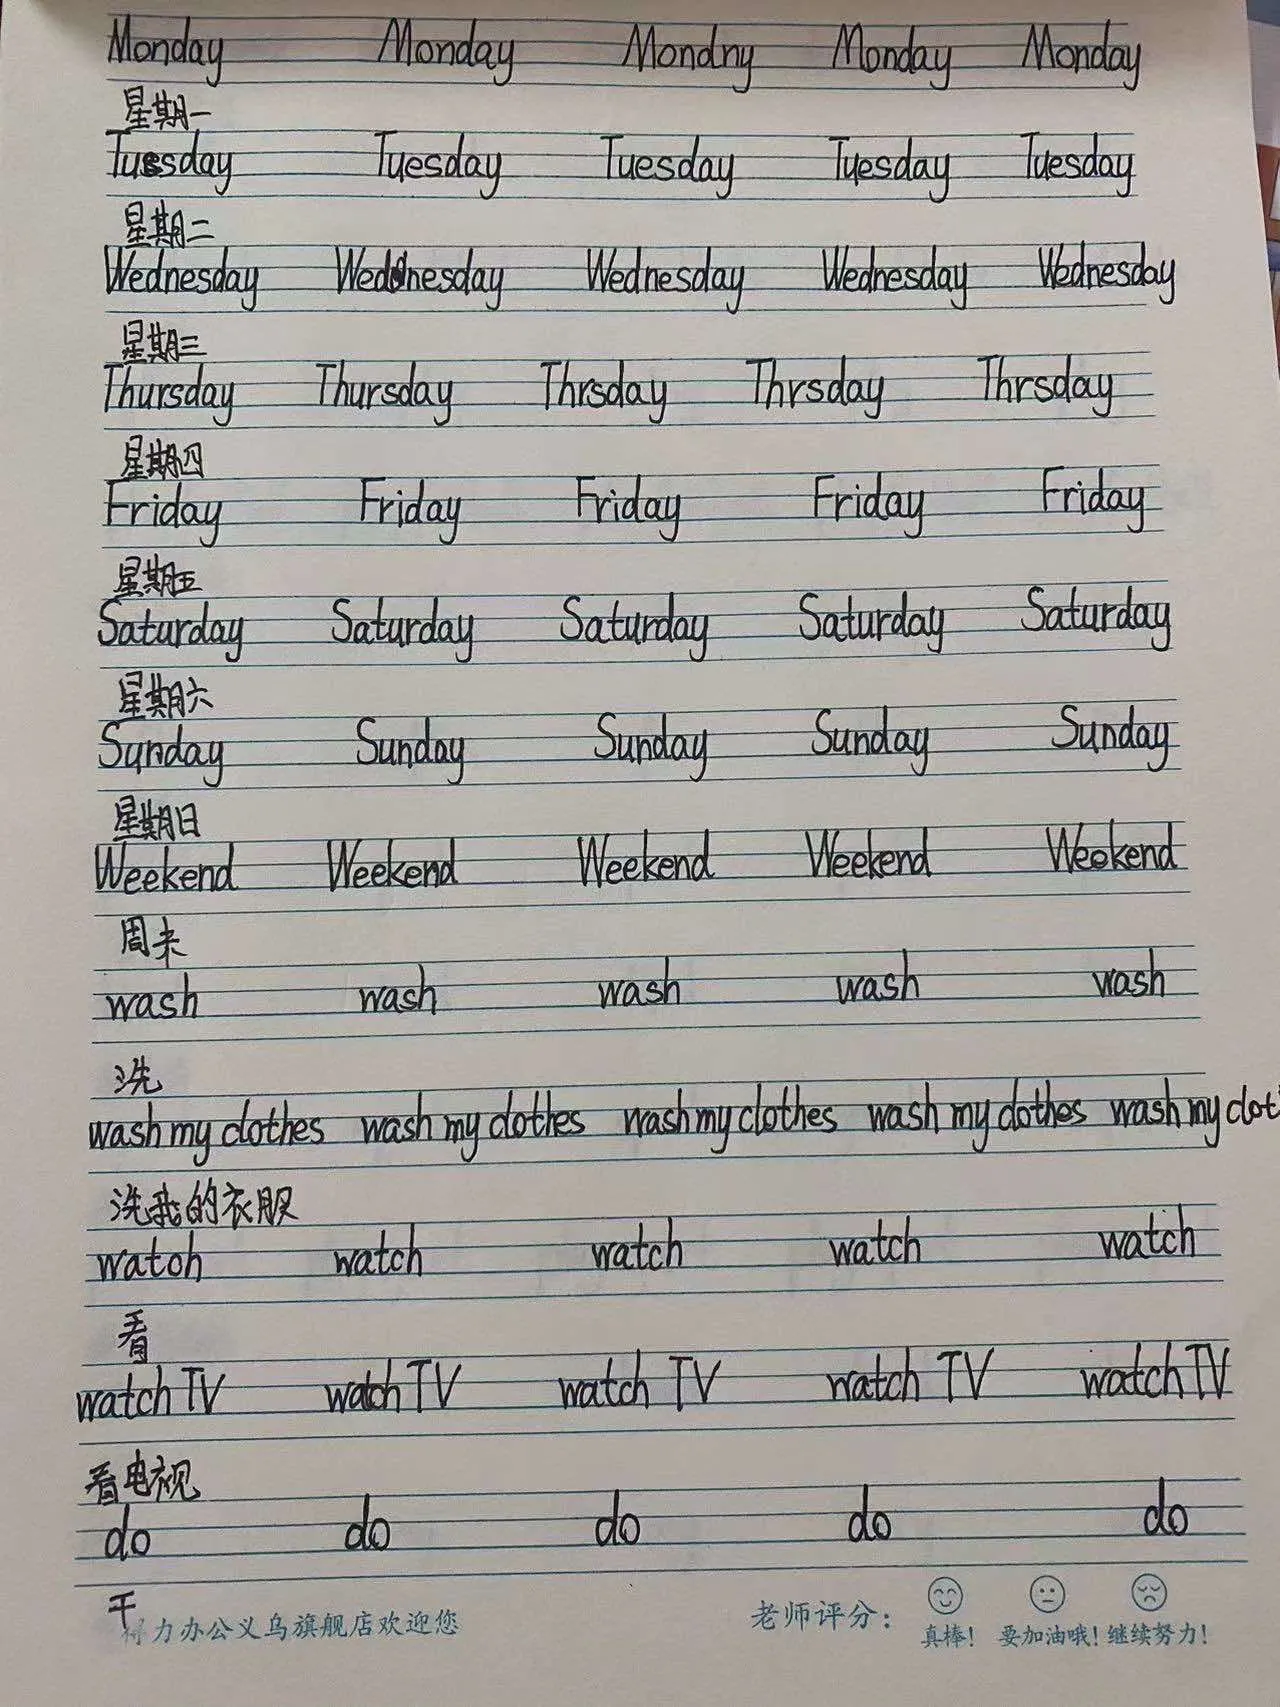 Monday Monday Mondny Monday Monday
星期一
Tuesday Tuesday Tuesday Tuesday Tuesday
星期二
Wednesday Wednesday Wednesday Wednesday Wednesday
星期三
Thursday Thursday Thrsday Thrsday Thrsday
星期四
Friday Friday Friday Friday Friday
星期五
Saturday Saturday Saturday Saturday Saturday
星期六
Sunday Sunday Sunday Sunday Sunday
星期日
Weekend Weekend Weekend Weekend Weekend
周末
wash wash wash wash wash
洗
wash my clothes wash my clothes wash my clothes wash my clothes wash my clot
洗我的衣服
watch watch watch watch watch
看
watch TV watch TV watch TV watch TV watch TV
看电视
do do do do do
干
得力办公义乌旗舰店欢迎您 老师评分：
真棒！ 要加油哦！ 继续努力！